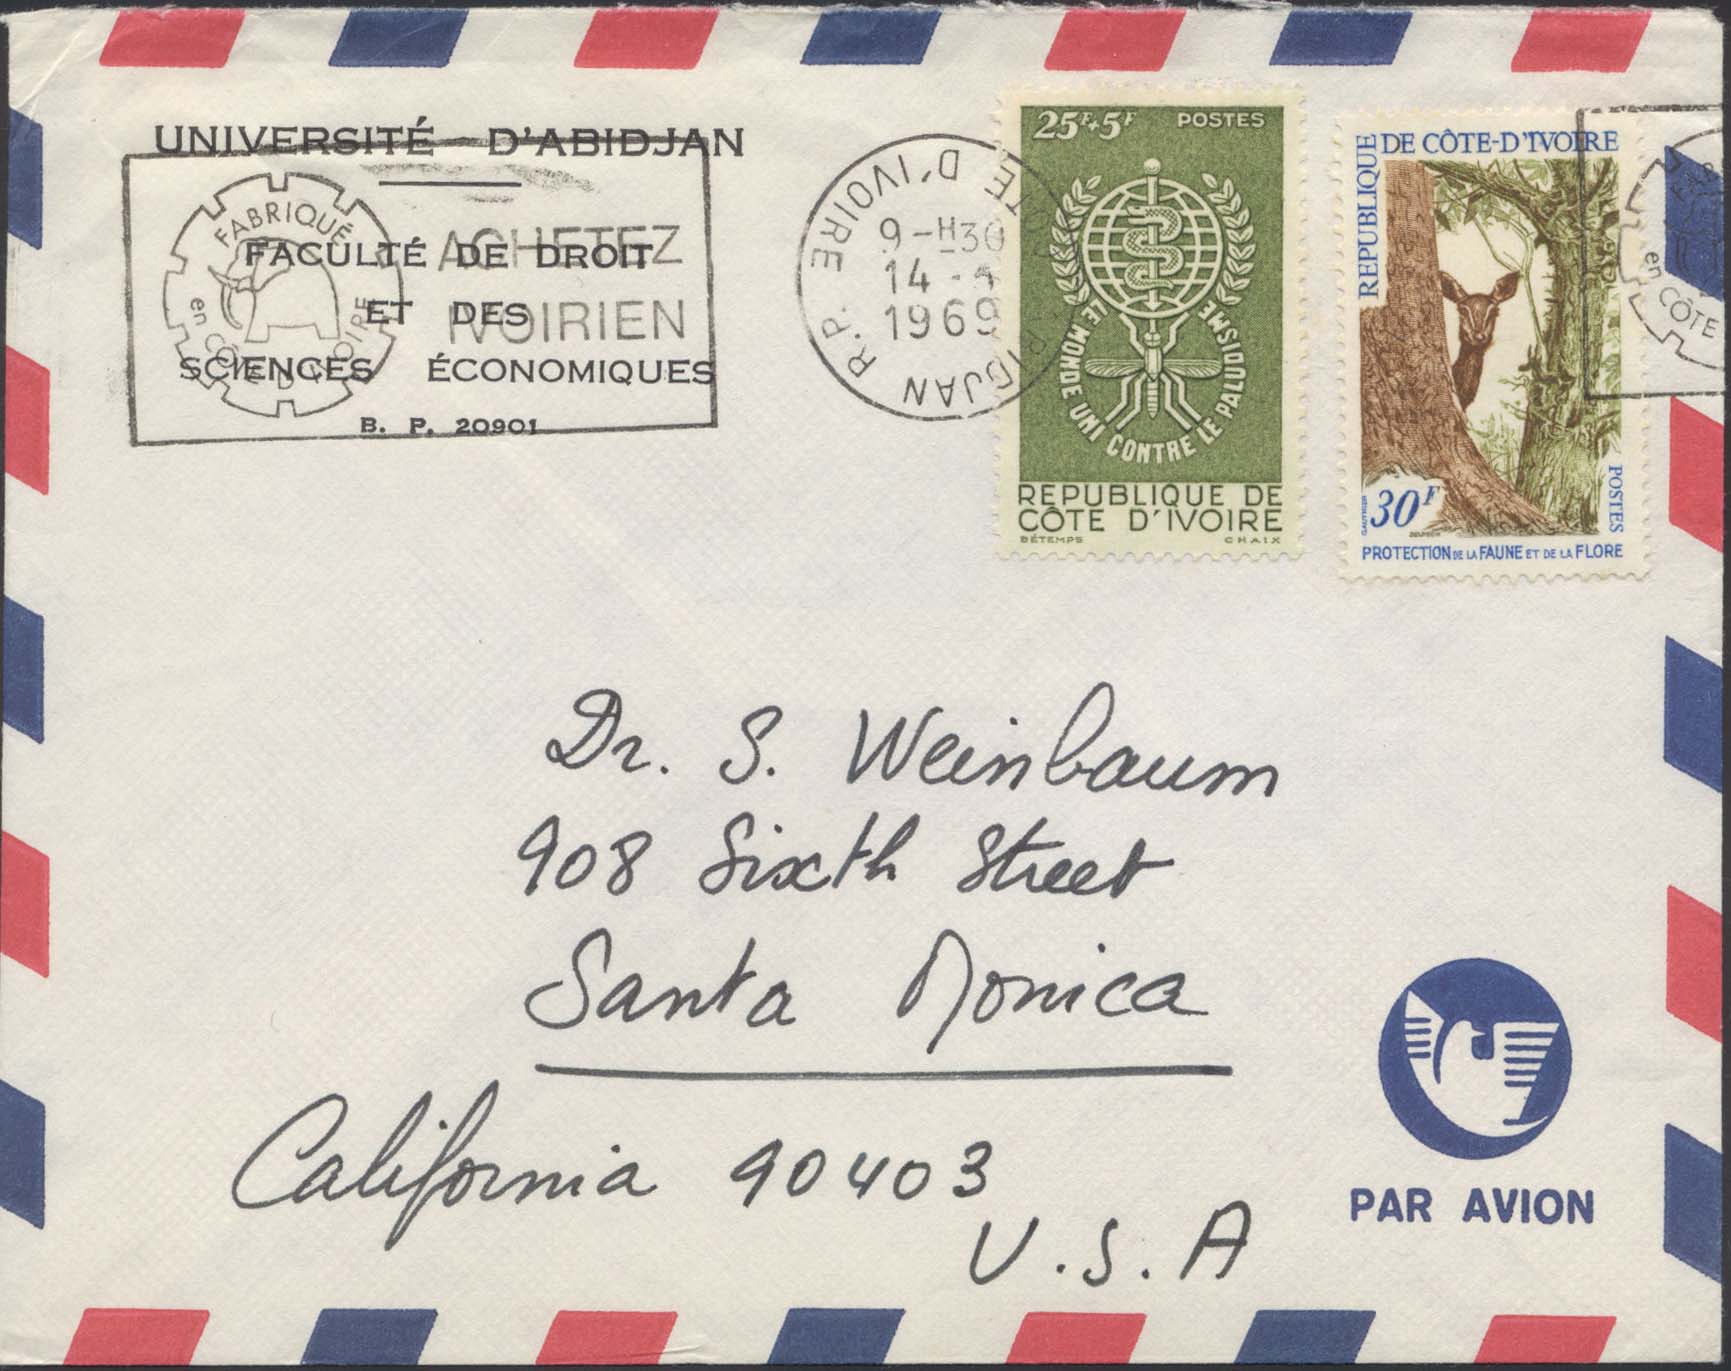 UNIVERSITÉ D'ABIDJAN
FACULTÉ DE DROIT
ET DES
SCIENCES ÉCONOMIQUES
B. P. 20901
FABRIQUÉ
en CÔTE D'IVOIRE
ACHETEZ
IVOIRIEN
ABIDJAN R.P.
CÔTE D'IVOIRE
9-H30
14 - 4
1969
25F+5F POSTES
LE MONDE UNI CONTRE LE PALUDISME
REPUBLIQUE DE
CÔTE D'IVOIRE
BÉTEMPS CHAIX
REPUBLIQUE DE CÔTE-D'IVOIRE
30F
POSTES
GAUTHIER DELPECH
PROTECTION DE LA FAUNE ET DE LA FLORE
en CÔTE
Dr. S. Weinbaum
908 Sixth Street
Santa Monica
California 90403
U.S.A
PAR AVION